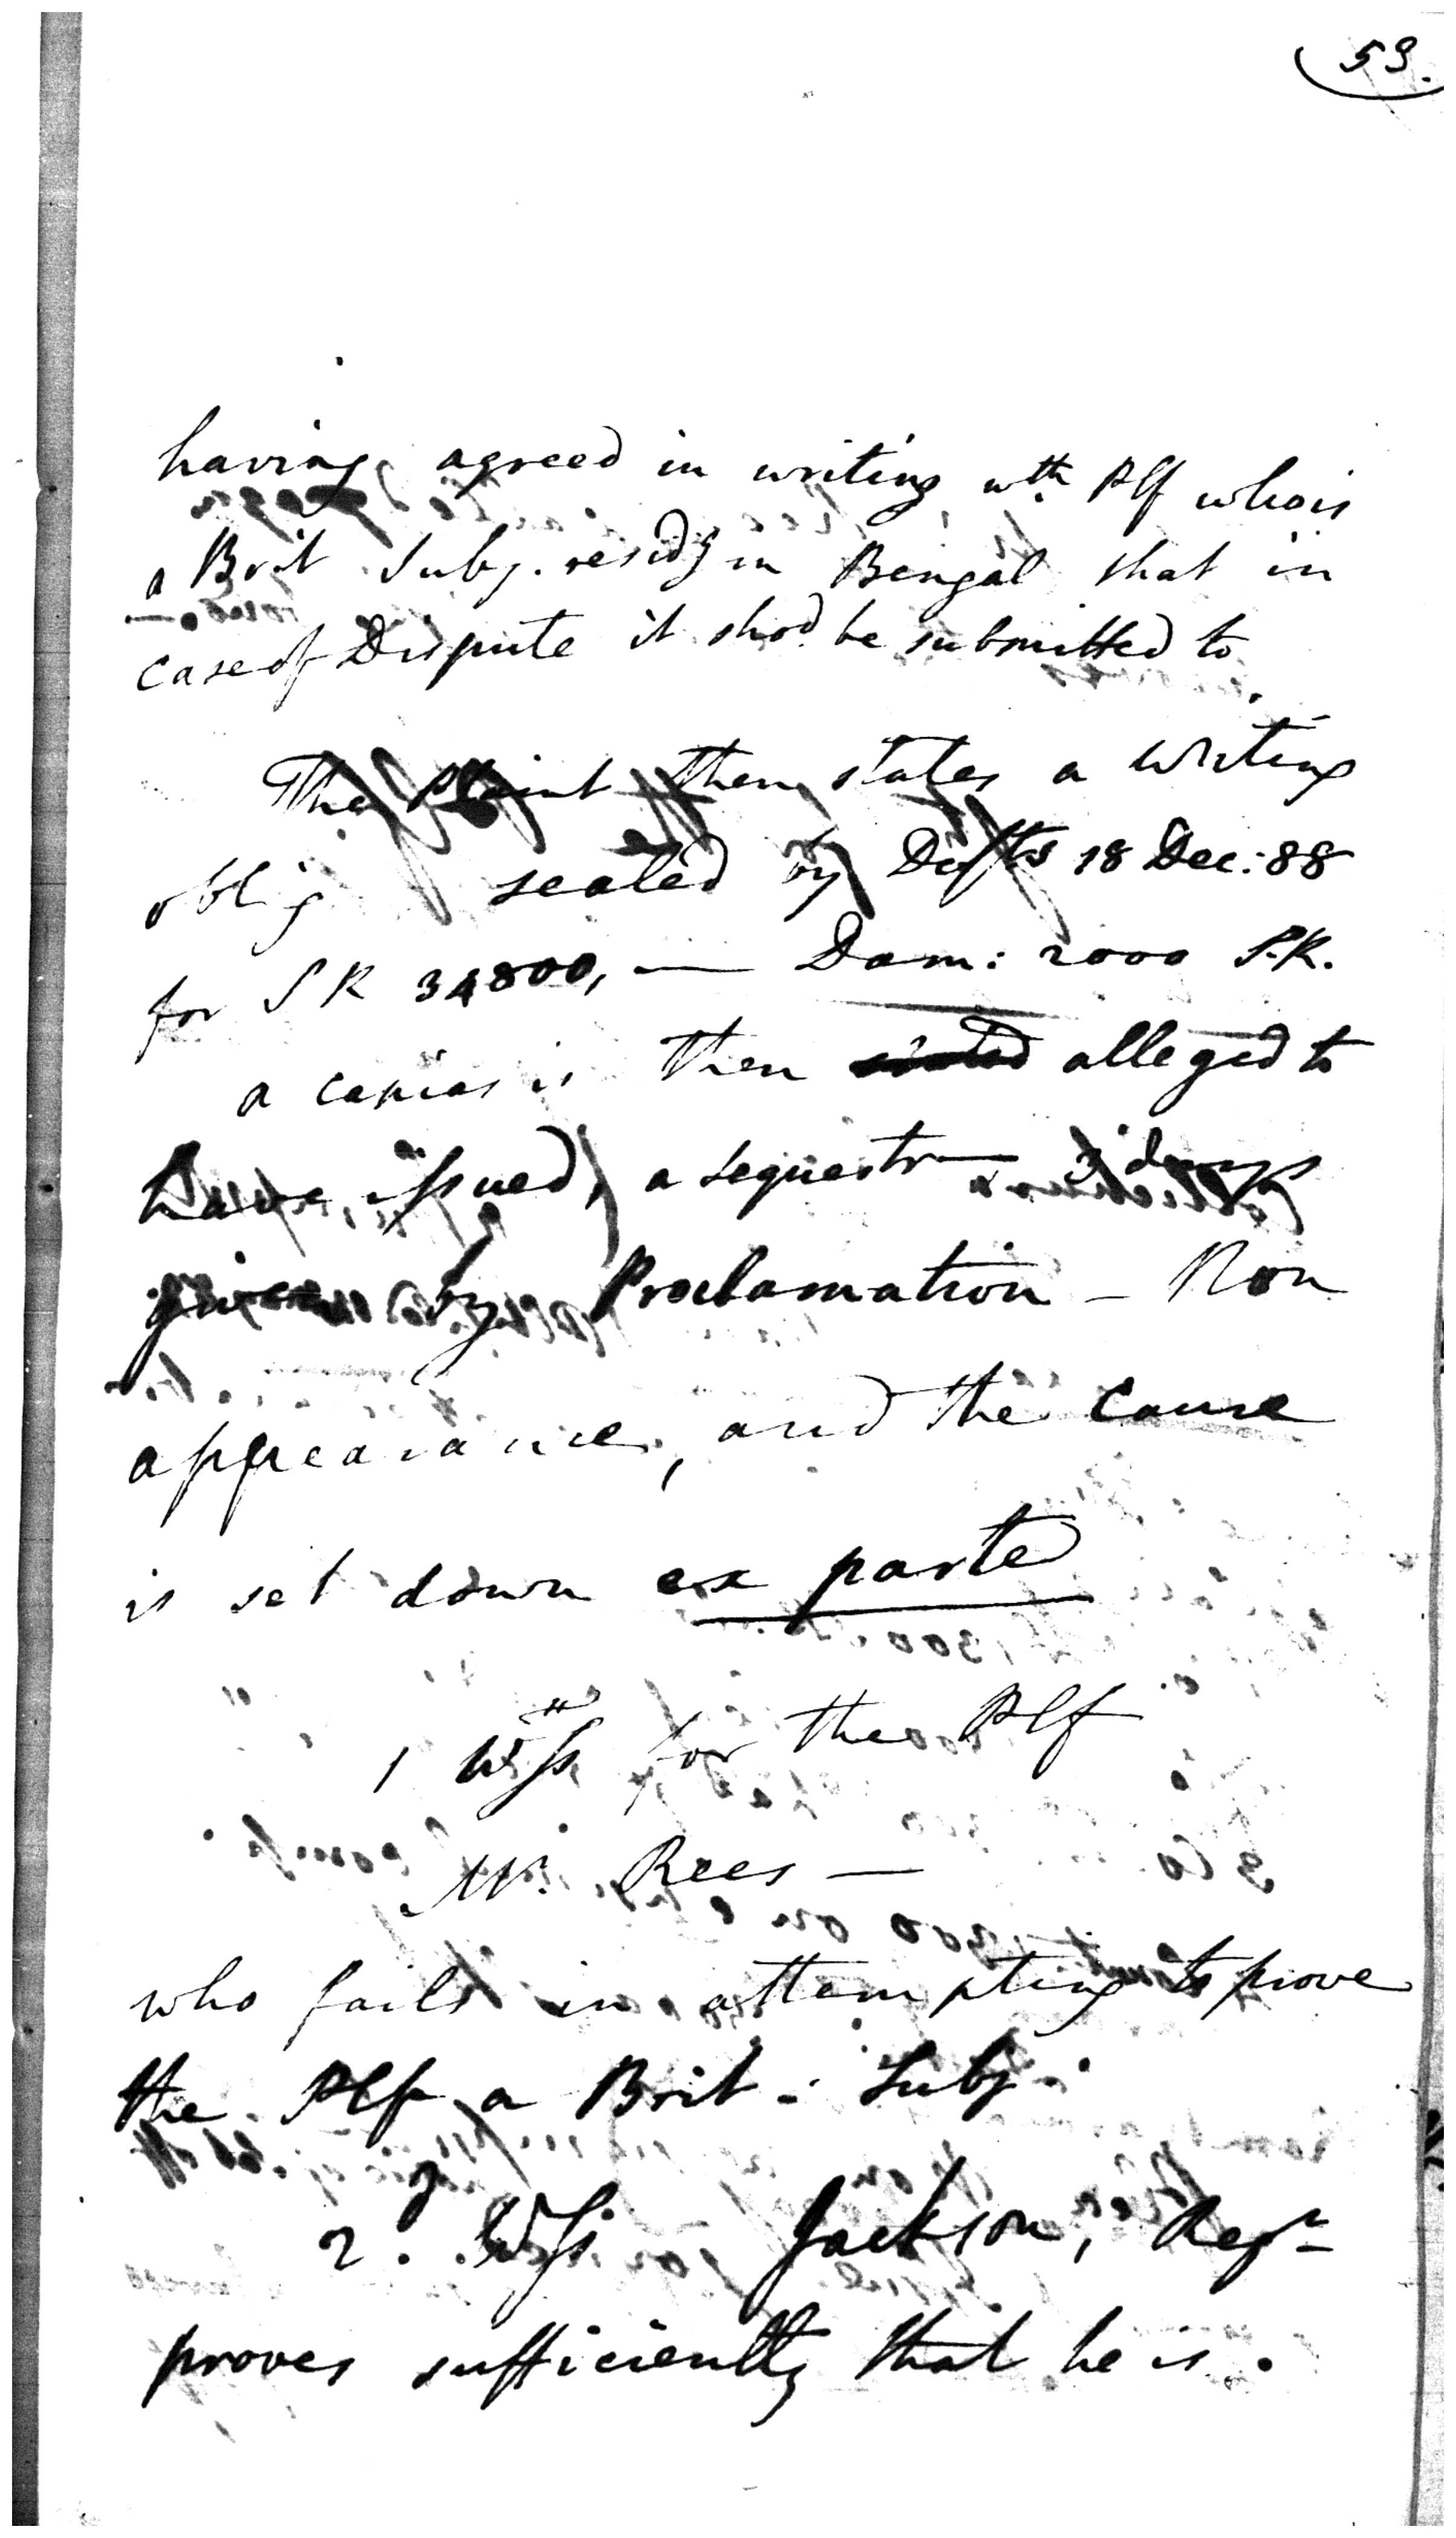 59.
having agreed in writing wth. Plf who is
a Brit Subj. residg in Bengal that in
case of Dispute it shod. be submitted to
The plaint then states a writing
oblig sealed by Defts 18 Dec: 88
for S R 34800, — Dam: 2000 S.R.
a capias is then alleged to
have issued, a sequestr— 3 days
given by Proclamation – Non
appearance, and the cause
is set down ex parte
1 Wss for the Plf
Mr. Rees —
who fails in attempting to prove
the Plf a Brit - Subj.
2. Wss Jackson, Regr
proves sufficiently that he is.